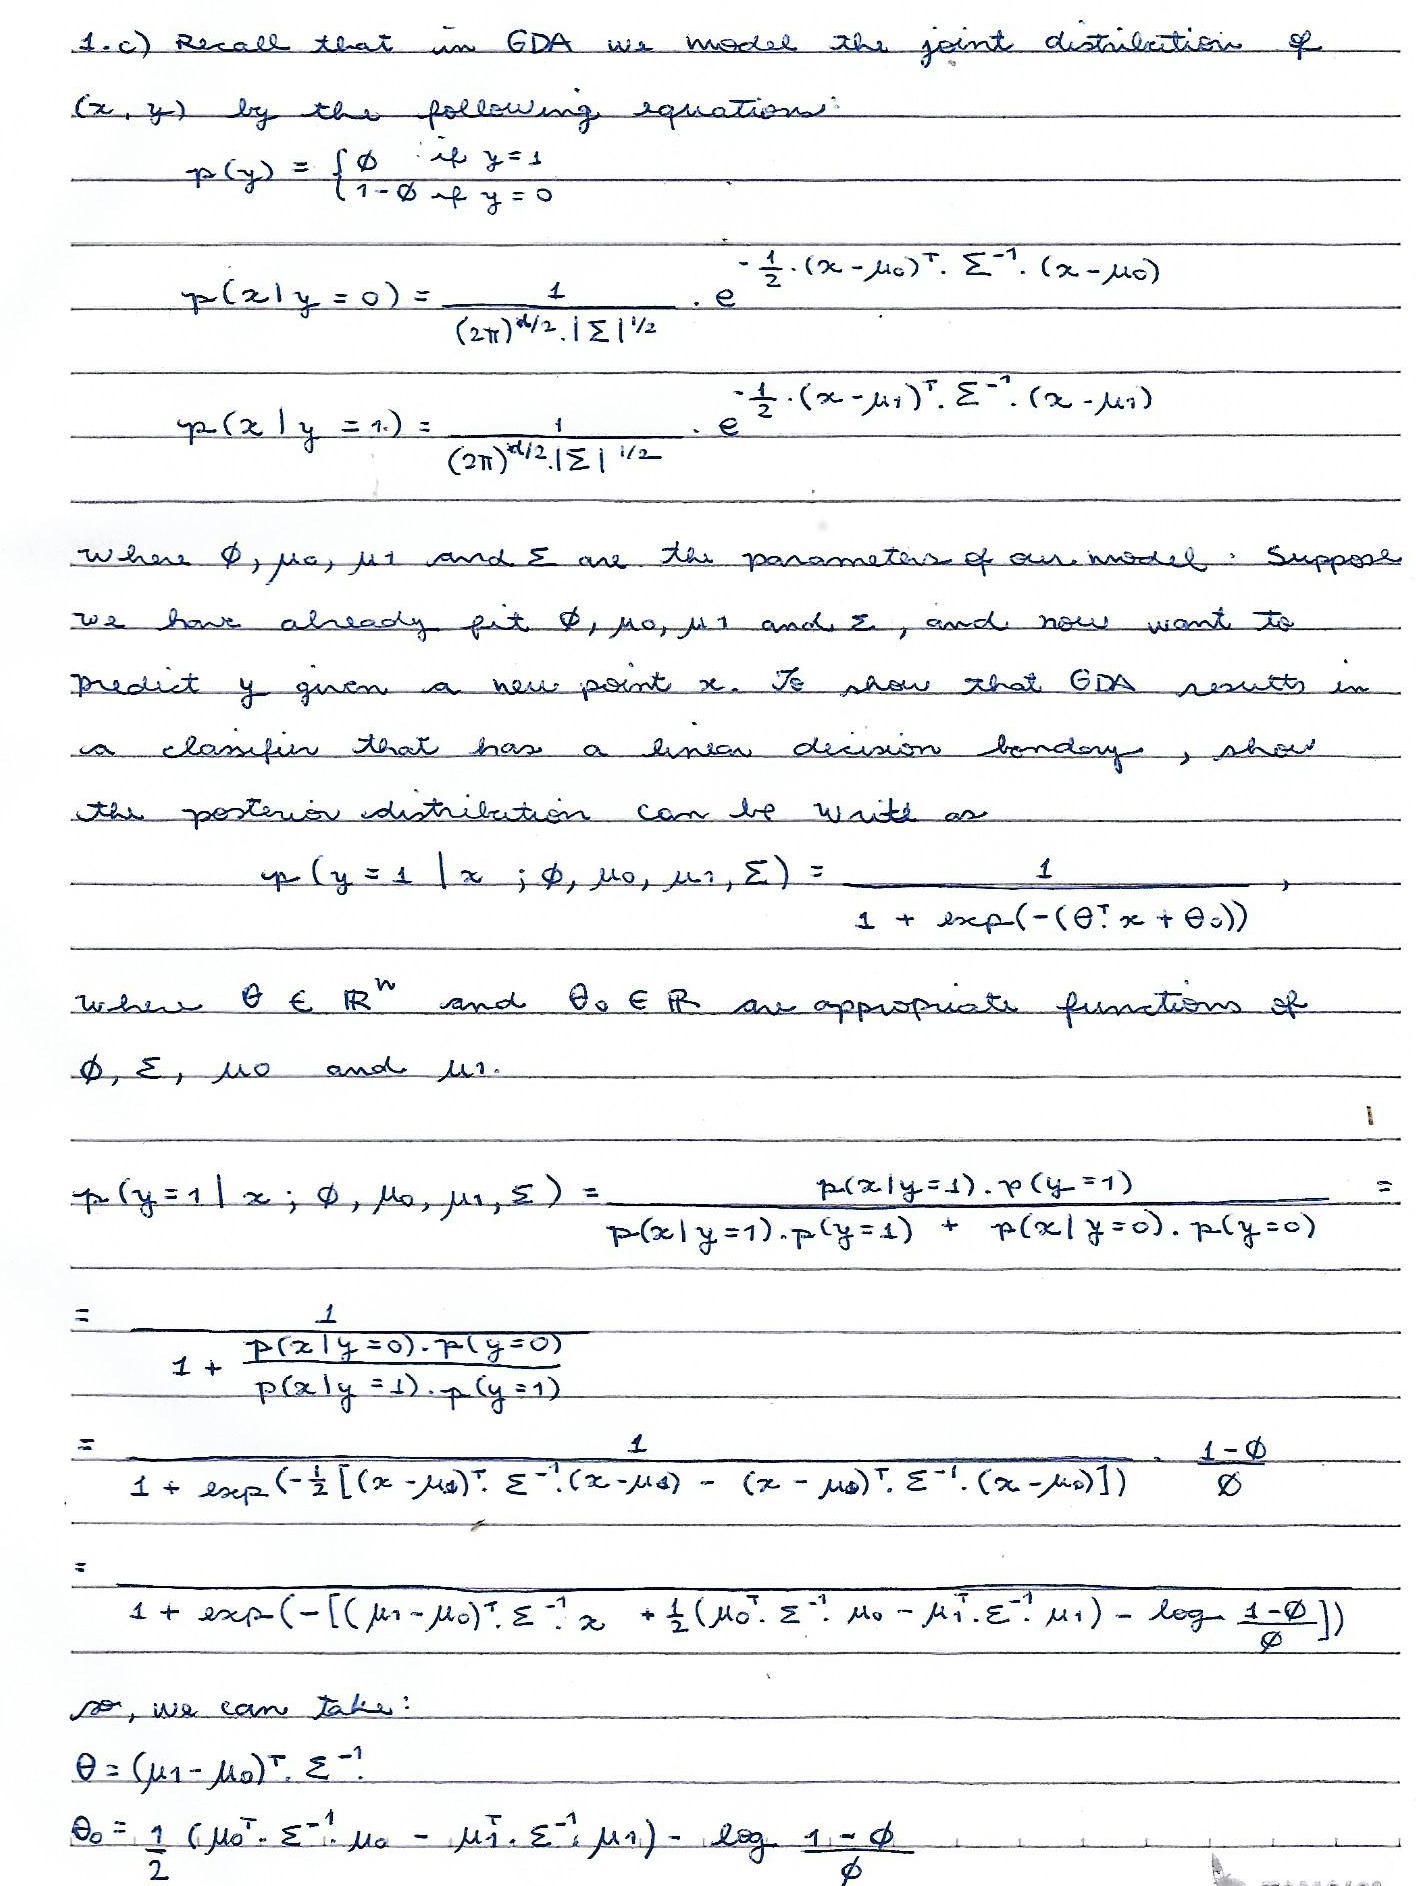 1.c) Recall that in GDA we model the joint distribution of
(x, y) by the following equations:
p(y) = { ϕ if y = 1
1 - ϕ if y = 0
p(x | y = 0) = 1 / ((2π)^(d/2) . |Σ|^(1/2)) . e^(-1/2 . (x - μ0)^T . Σ^-1 . (x - μ0))
p(x | y = 1) = 1 / ((2π)^(d/2) . |Σ|^(1/2)) . e^(-1/2 . (x - μ1)^T . Σ^-1 . (x - μ1))
where ϕ, μ0, μ1 and Σ are the parameters of our model. Suppose
we have already fit ϕ, μ0, μ1 and Σ, and now want to
predict y given a new point x. To show that GDA results in
a classifier that has a linear decision bondary, show
the posterior distribution can be writte as
p(y = 1 | x ; ϕ, μ0, μ1, Σ) = 1 / (1 + exp(-(θ^T. x + θ0))) ,
where θ ∈ ℝ^n and θ0 ∈ ℝ are appropriate functions of
ϕ, Σ, μ0 and μ1.
p(y = 1 | x ; ϕ, μ0, μ1, Σ) = (p(x | y = 1) . p(y = 1)) / (p(x | y = 1) . p(y = 1) + p(x | y = 0) . p(y = 0)) =
= 1 / (1 + (p(x | y = 0) . p(y = 0)) / (p(x | y = 1) . p(y = 1)))
= 1 / (1 + exp(-1/2 [(x - μ0)^T . Σ^-1 . (x - μ0) - (x - μ0)^T . Σ^-1 . (x - μ0)])) . (1 - ϕ) / ϕ
= / (1 + exp(-[(μ1 - μ0)^T . Σ^-1 . x + 1/2 (μ0^T . Σ^-1 . μ0 - μ1^T . Σ^-1 . μ1) - log (1 - ϕ)/ϕ]))
so, we can take:
θ = (μ1 - μ0)^T . Σ^-1 .
θ0 = 1/2 (μ0^T . Σ^-1 . μ0 - μ1^T . Σ^-1 . μ1) - log (1 - ϕ)/ϕ